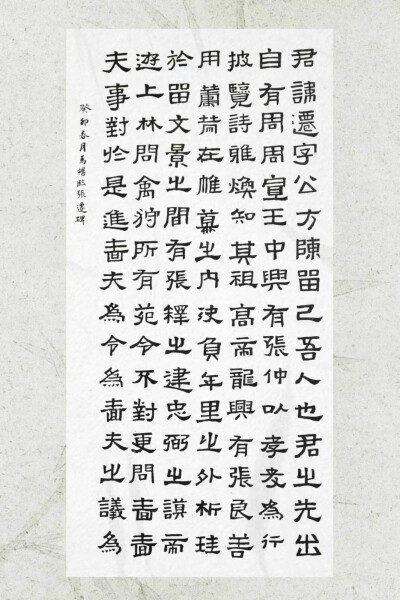 君諱遷字公方陳留己吾人也君之先出
自有周周宣王中興有張仲以孝友為行
披覽詩雅煥知其祖高帝龍興有張良善
用籌策在帷幕之內決負千里之外析珪
於留文景之間有張釋之建忠弼之謨帝
遊上林問禽狩所有苑令不對更問嗇嗇
夫事對於是進嗇夫為令為嗇夫之議為
癸卯春月馬暢臨張遷碑